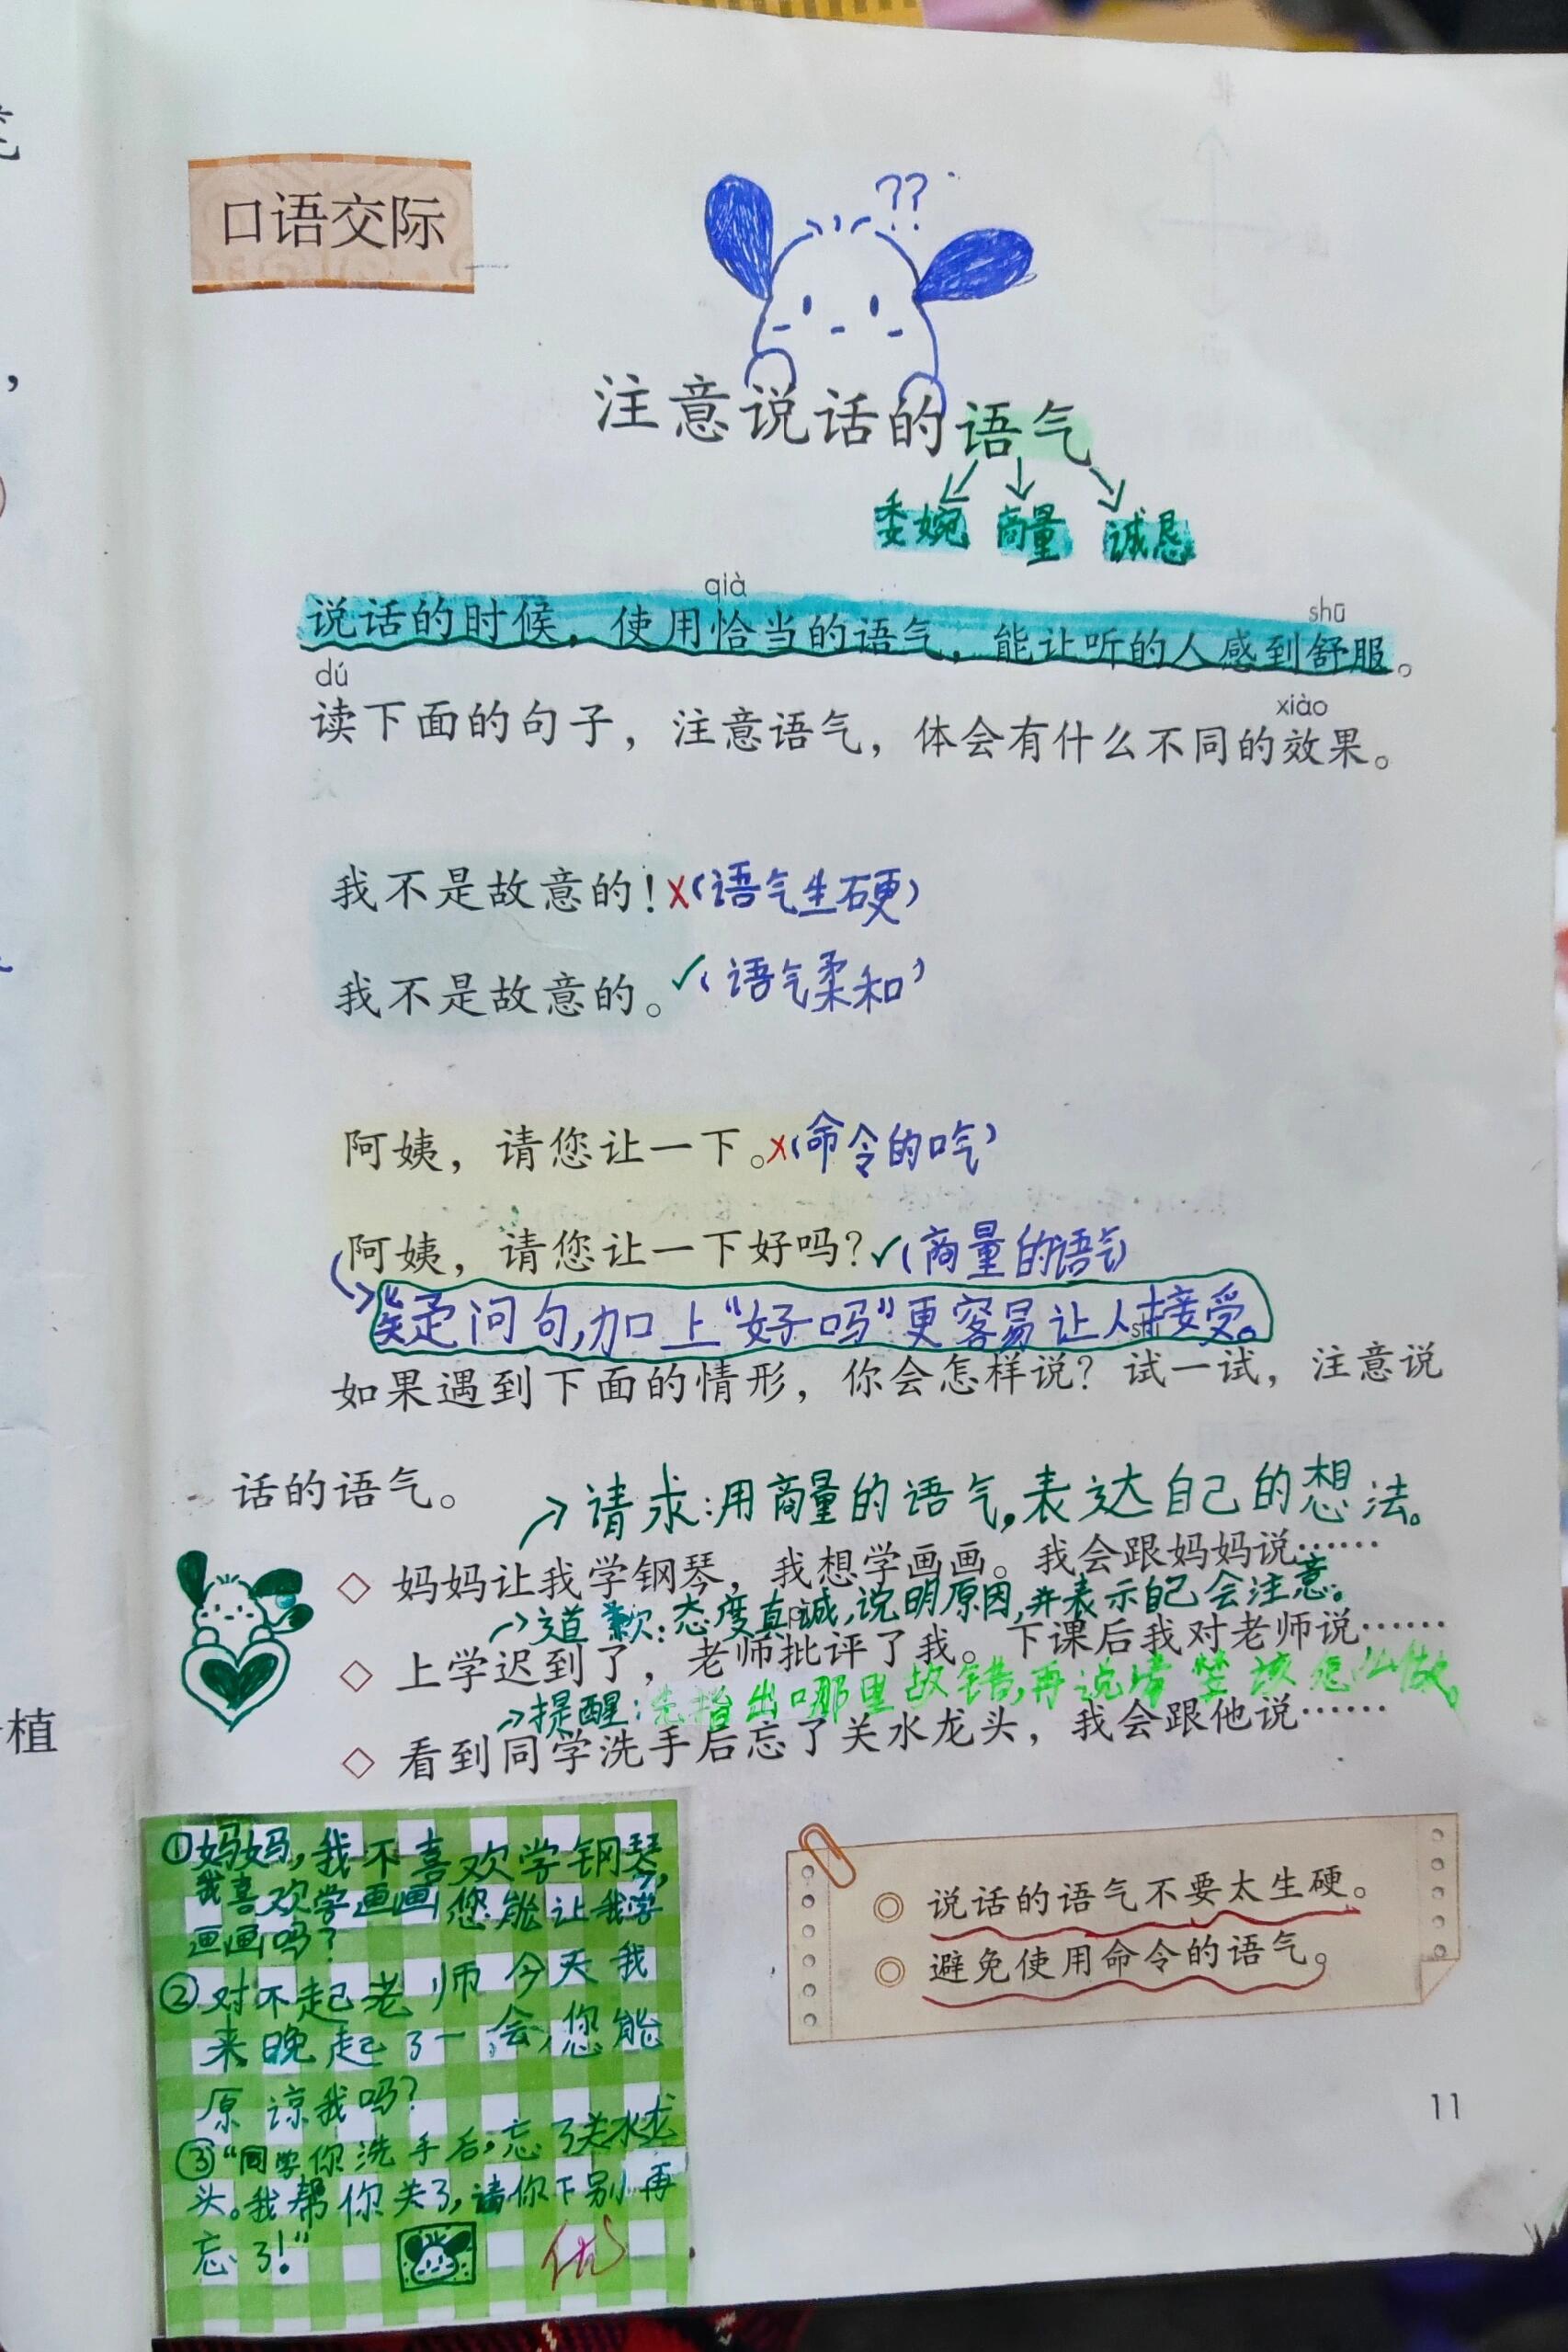 口语交际
??
注意说话的语气
委婉 商量 诚恳
qià shū
说话的时候，使用恰当的语气，能让听的人感到舒服。
dú xiào
读下面的句子，注意语气，体会有什么不同的效果。
我不是故意的！x（语气生硬）
我不是故意的。✓（语气柔和）
阿姨，请您让一下。x（命令的口气）
阿姨，请您让一下好吗？✓（商量的语气）
疑问句,加上“好吗”更容易让人接受。
如果遇到下面的情形，你会怎样说？试一试，注意说
话的语气。
→请求:用商量的语气,表达自己的想法。
◇ 妈妈让我学钢琴，我想学画画。我会跟妈妈说……
→道歉:态度真诚,说明原因,并表示自己会注意。
◇ 上学迟到了，老师批评了我。下课后我对老师说……
→提醒:先指出哪里做错,再说清楚该怎么做。
◇ 看到同学洗手后忘了关水龙头，我会跟他说……
①妈妈,我不喜欢学钢琴,
我喜欢学画画 您能让我学
画画吗?
②对不起老师今天我
来晚起了一会,您能
原谅我吗?
③“同学你洗手后,忘了关水龙
头。我帮你关了,请你下别再
忘了!”
优
◎ 说话的语气不要太生硬。
◎ 避免使用命令的语气。
11
植